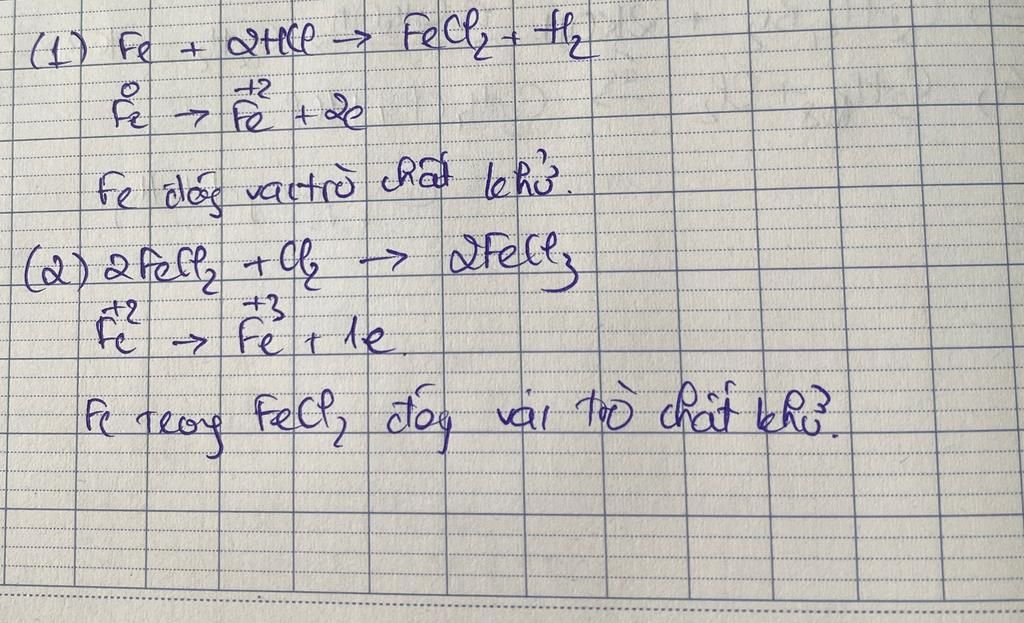 (1) Fe + 2HCl → FeCl₂ + H₂
0 +2
Fe → Fe + 2e
Fe đóg vai trò chất khử.
(2) 2FeCl₂ + Cl₂ → 2FeCl₃
+2 +3
Fe → Fe + 1e.
Fe trong FeCl₂ đóg vai trò chất khử.